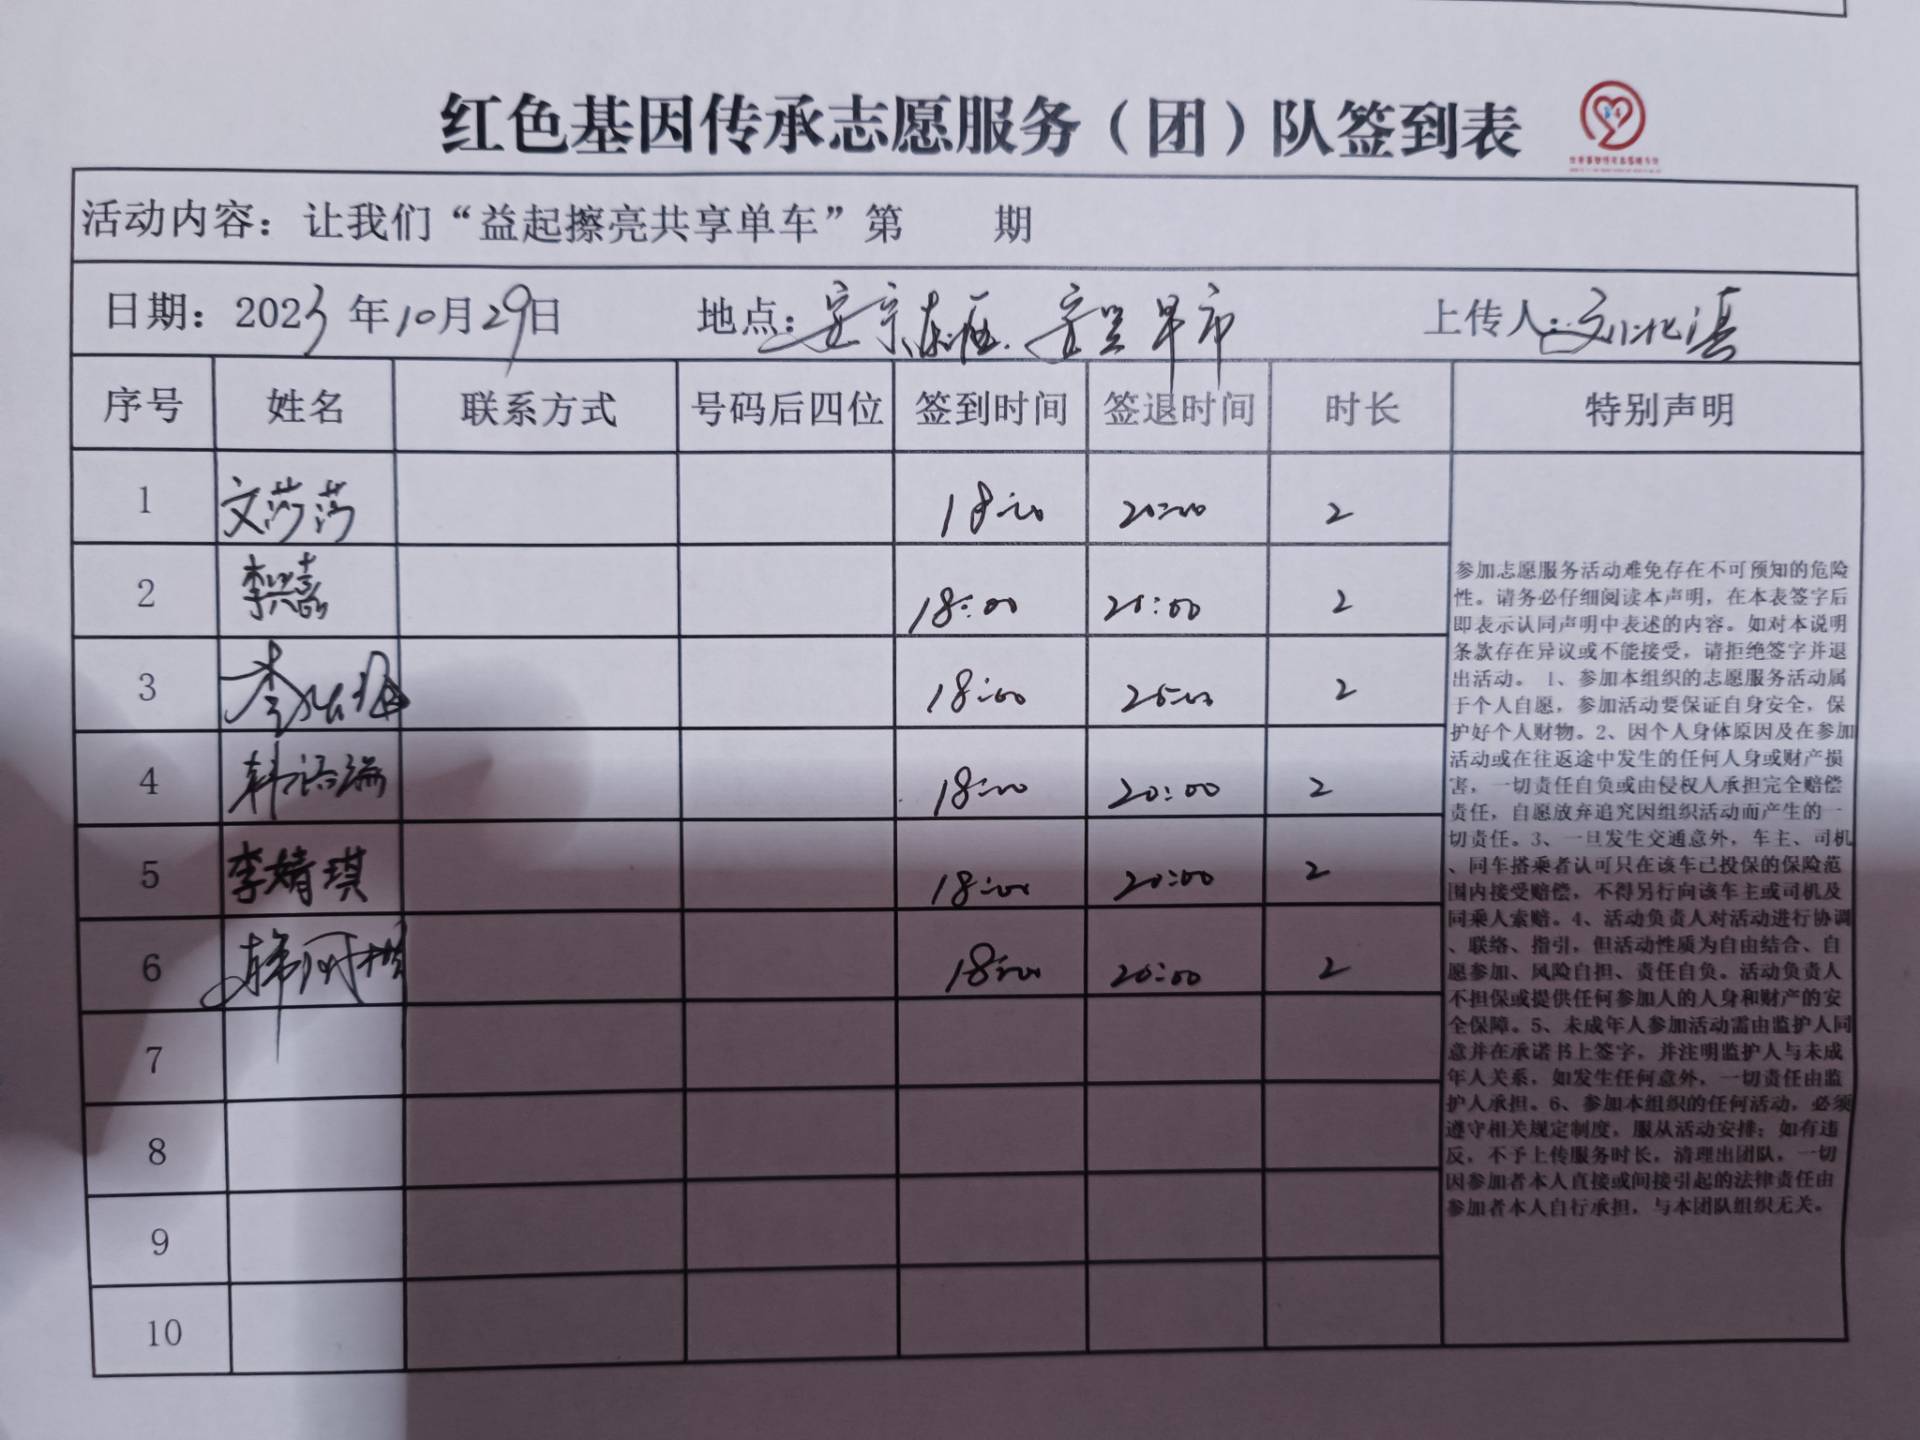 红色基因传承志愿服务（团）队签到表
活动内容：让我们“益起擦亮共享单车”第 期
日期：2023年10月29日 地点： 上传人：
序号 姓名 联系方式 号码后四位 签到时间 签退时间 时长 特别声明
1 文莎莎 18:00 20:00 2
2 18:00 20:00 2
3 李 18:00 20:00 2
4 韩语瑞 18:00 20:00 2
5 李婧琪 18:00 20:00 2
6 韩 18:00 20:00 2
7
8
9
10
参加志愿服务活动难免存在不可预知的危险
性。请务必仔细阅读本声明，在本表签字后
即表示认同声明中表述的内容。如对本说明
条款存在异议或不能接受，请拒绝签字并退
出活动。1、参加本组织的志愿服务活动属
于个人自愿，参加活动要保证自身安全，保
护好个人财物。2、因个人身体原因及在参加
活动或在往返途中发生的任何人身或财产损
害，一切责任自负或由侵权人承担完全赔偿
责任，自愿放弃追究因组织活动而产生的一
切责任。3、一旦发生交通意外，车主、司机
、同车搭乘者认可只在该车已投保的保险范
围内接受赔偿，不得另行向该车主或司机及
同乘人索赔。4、活动负责人对活动进行协调
、联络、指引，但活动性质为自由结合、自
愿参加、风险自担、责任自负。活动负责人
不担保或提供任何参加人的人身和财产的安
全保障。5、未成年人参加活动需由监护人同
意并在承诺书上签字，并注明监护人与未成
年人关系，如发生任何意外，一切责任由监
护人承担。6、参加本组织的任何活动，必须
遵守相关规定制度，服从活动安排；如有违
反，不予上传服务时长，清理出团队，一切
因参加者本人直接或间接引起的法律责任由
参加者本人自行承担，与本团队组织无关。